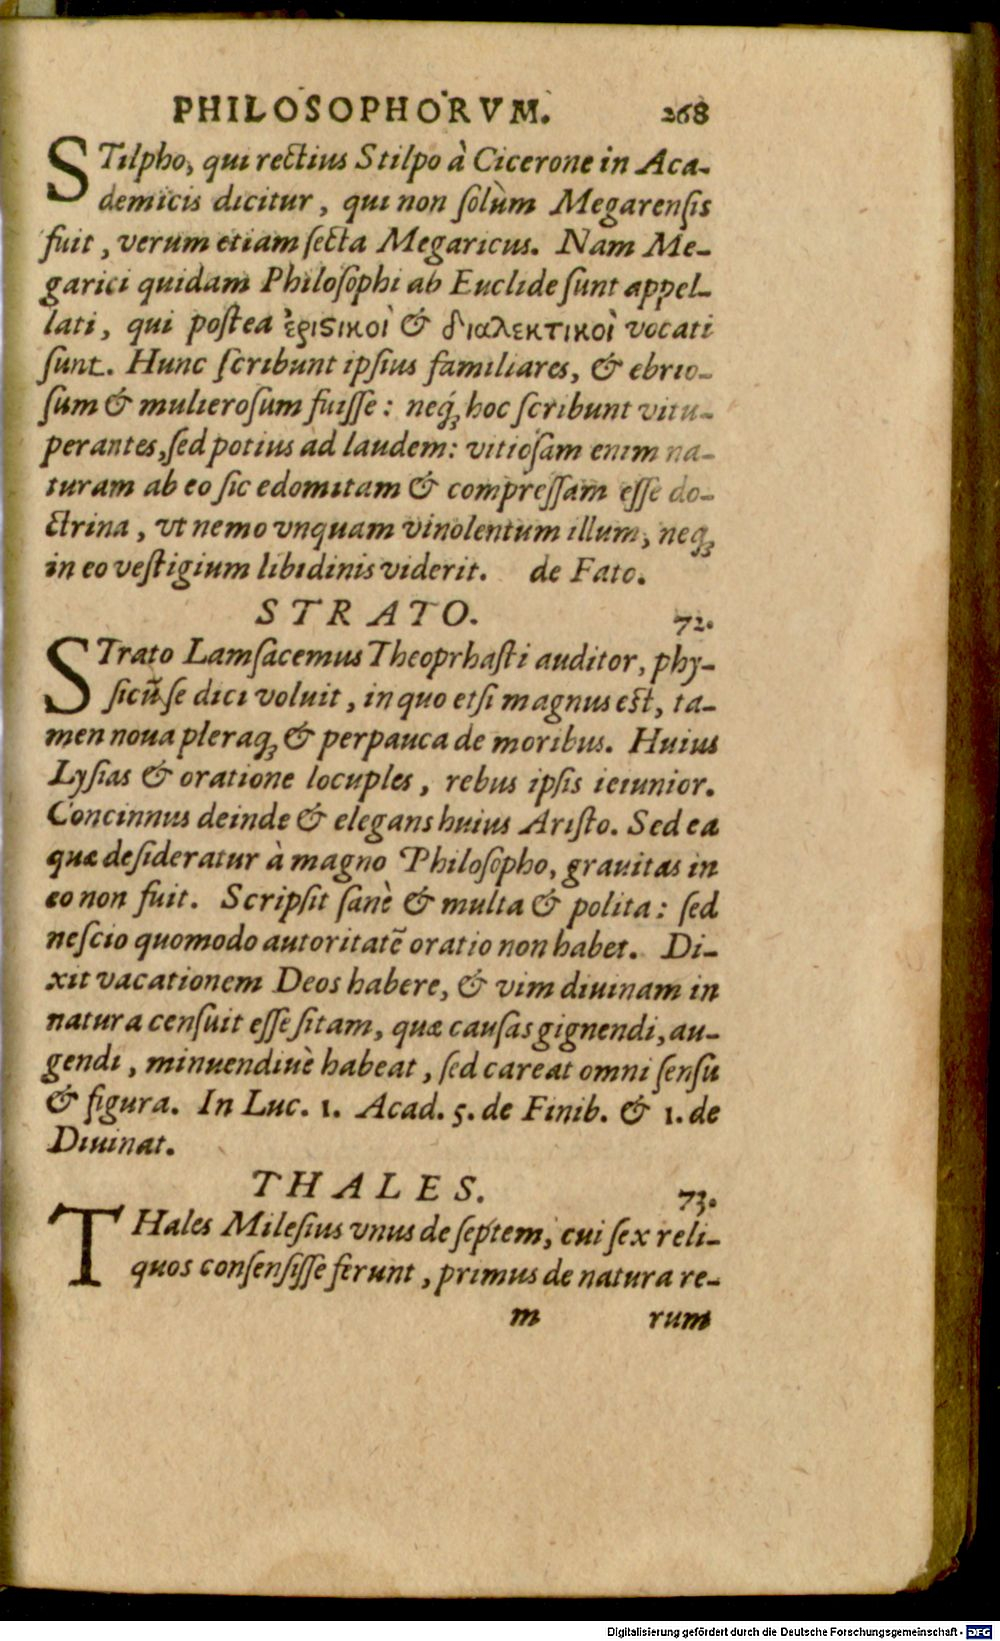 PHILOSOPHORVM. 268
STilpho, qui rectius Stilpo à Cicerone in Aca-
demicis dicitur, qui non ſolùm Megarenſis
fuit, verum etiam ſecta Megaricus. Nam Me-
garici quidam Philoſophi ab Euclide ſunt appel-
lati, qui poſtea ἐριϛικοὶ & διαλεκτικοὶ vocati
ſunt. Hunc ſcribunt ipſius familiares, & ebrio-
ſum & mulieroſum fuiſſe: neq́ꝫ hoc ſcribunt vitu-
perantes, ſed potius ad laudem: vitioſam enim na-
turam ab eo ſic edomitam & compreſſam eſſe do-
ctrina, vt nemo vnquam vinolentum illum, neqꝫ
in eo veſtigium libidinis viderit. de Fato.
STRATO. 72.
STrato Lamſacemus Theoprhaſti auditor, phy-
ſicū ſe dici voluit, in quo etſi magnus est, ta-
men noua pleraqꝫ & perpauca de moribus. Huius
Lyſias & oratione locuples, rebus ipſis ieiunior.
Concinnus deinde & elegans huius Ariſto. Sed ea
quæ deſideratur à magno Philoſopho, grauitas in
eo non fuit. Scripſit ſanè & multa & polita: ſed
neſcio quomodo autoritatē oratio non habet. Di-
xit vacationem Deos habere, & vim diuinam in
natura cenſuit eſſe ſitam, quæ cauſas gignendi, au-
gendi, minuendiuè habeat, ſed careat omni ſenſu
& figura. In Luc. 1. Acad. 5. de Finib. & 1. de
Diuinat.
THALES. 73.
THales Mileſius vnus de ſeptem, cui ſex reli-
quos conſenſiſſe ferunt, primus de natura re-
m rum
Digitalisierung gefördert durch die Deutsche Forschungsgemeinschaft - DFG